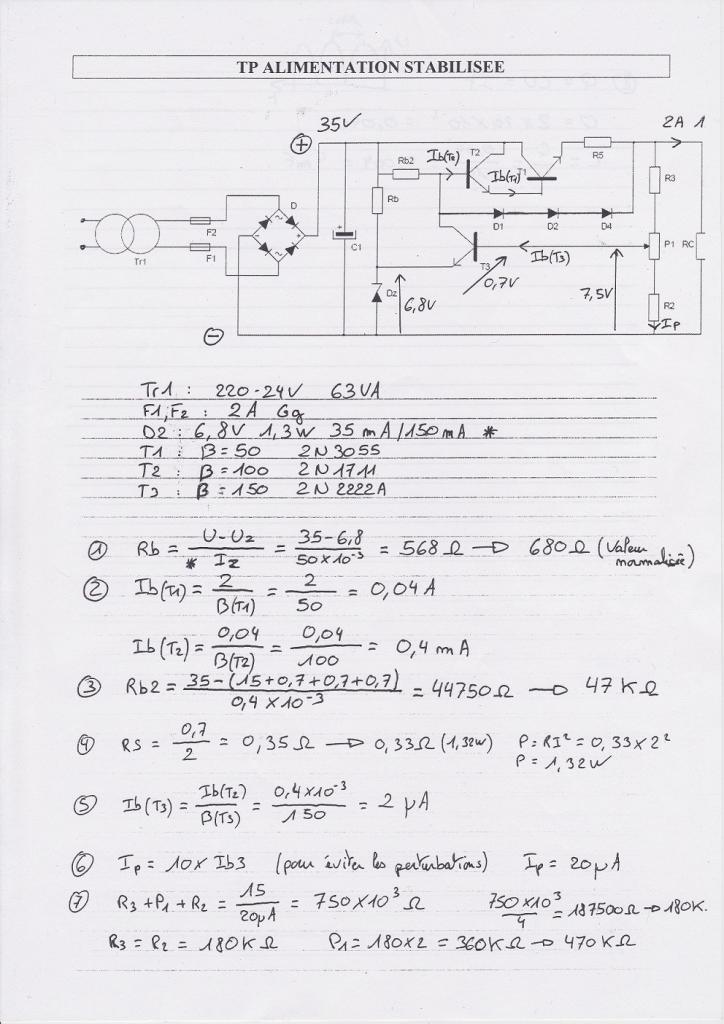 TP ALIMENTATION STABILISEE
35V
2A 1
+
Ib(T2)
T2
Rb2
Ib(T1)
T1
R5
R3
Rb
F2
D
D1
D2
D4
Tr1
F1
C1
T3
Ib(T3)
P1
RC
0,7V
Dz
6,8V
7,5V
R2
Ip
-
Tr1 : 220-24V 63VA
F1,F2 : 2A Gg
DZ : 6,8V 1,3W 35 mA/150mA *
T1 : β=50 2N3055
T2 : β=100 2N1711
T3 : β=150 2N2222A
① Rb = U-Uz / * Iz = 35-6,8 / 50×10⁻³ = 568Ω → 680Ω (valeur normalisée)
② Ib(T1) = 2 / β(T1) = 2 / 50 = 0,04A
Ib(T2) = 0,04 / β(T2) = 0,04 / 100 = 0,4mA
③ Rb2 = 35-(15+0,7+0,7+0,7) / 0,4×10⁻³ = 44750Ω → 47KΩ
④ R5 = 0,7 / 2 = 0,35Ω → 0,33Ω (1,32W) P=RI²=0,33×2²
P=1,32W
⑤ Ib(T3) = Ib(T2) / β(T3) = 0,4×10⁻³ / 150 = 2μA
⑥ Ip = 10× Ib3 (pour éviter les perturbations) Ip = 20μA
⑦ R3+P1+R2 = 15 / 20μA = 750×10³Ω 750×10³ / 4 = 187500Ω → 180K.
R3=R2 = 180KΩ P1=180×2 = 360KΩ → 470KΩ